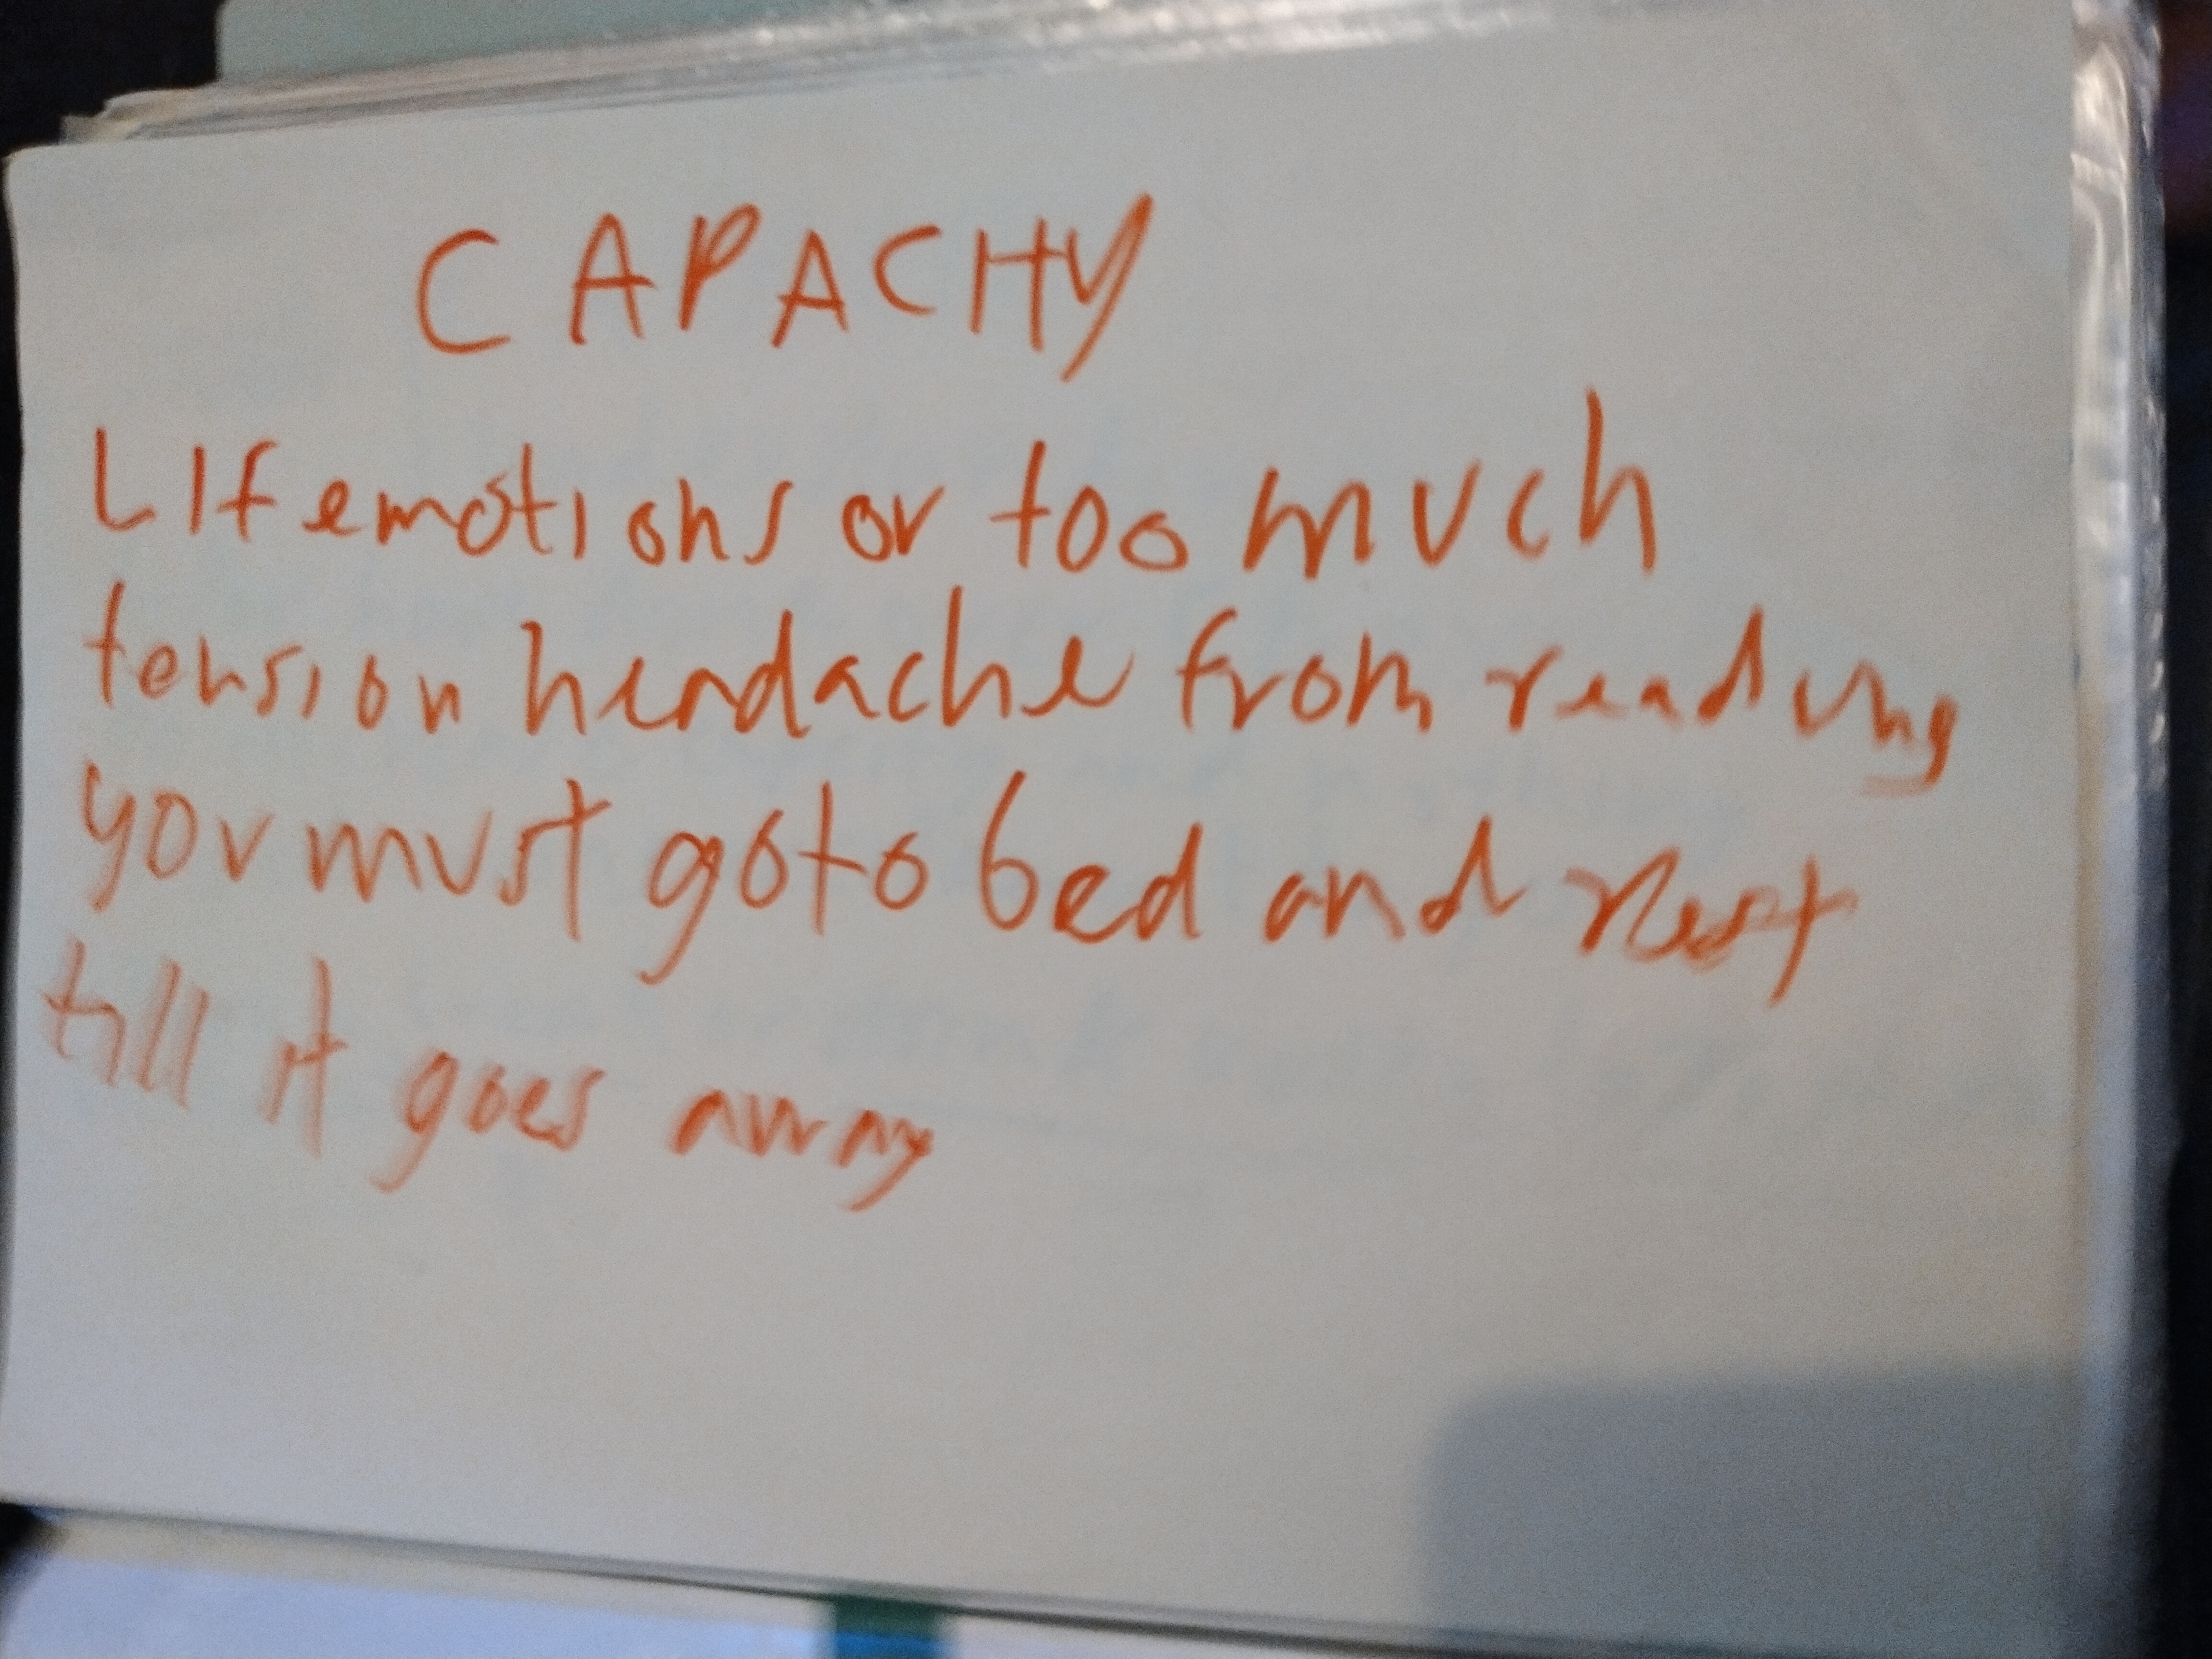 CAPACHY
LIf emotions or too much
tension headache from reading
you must go to bed and rest
till it goes away